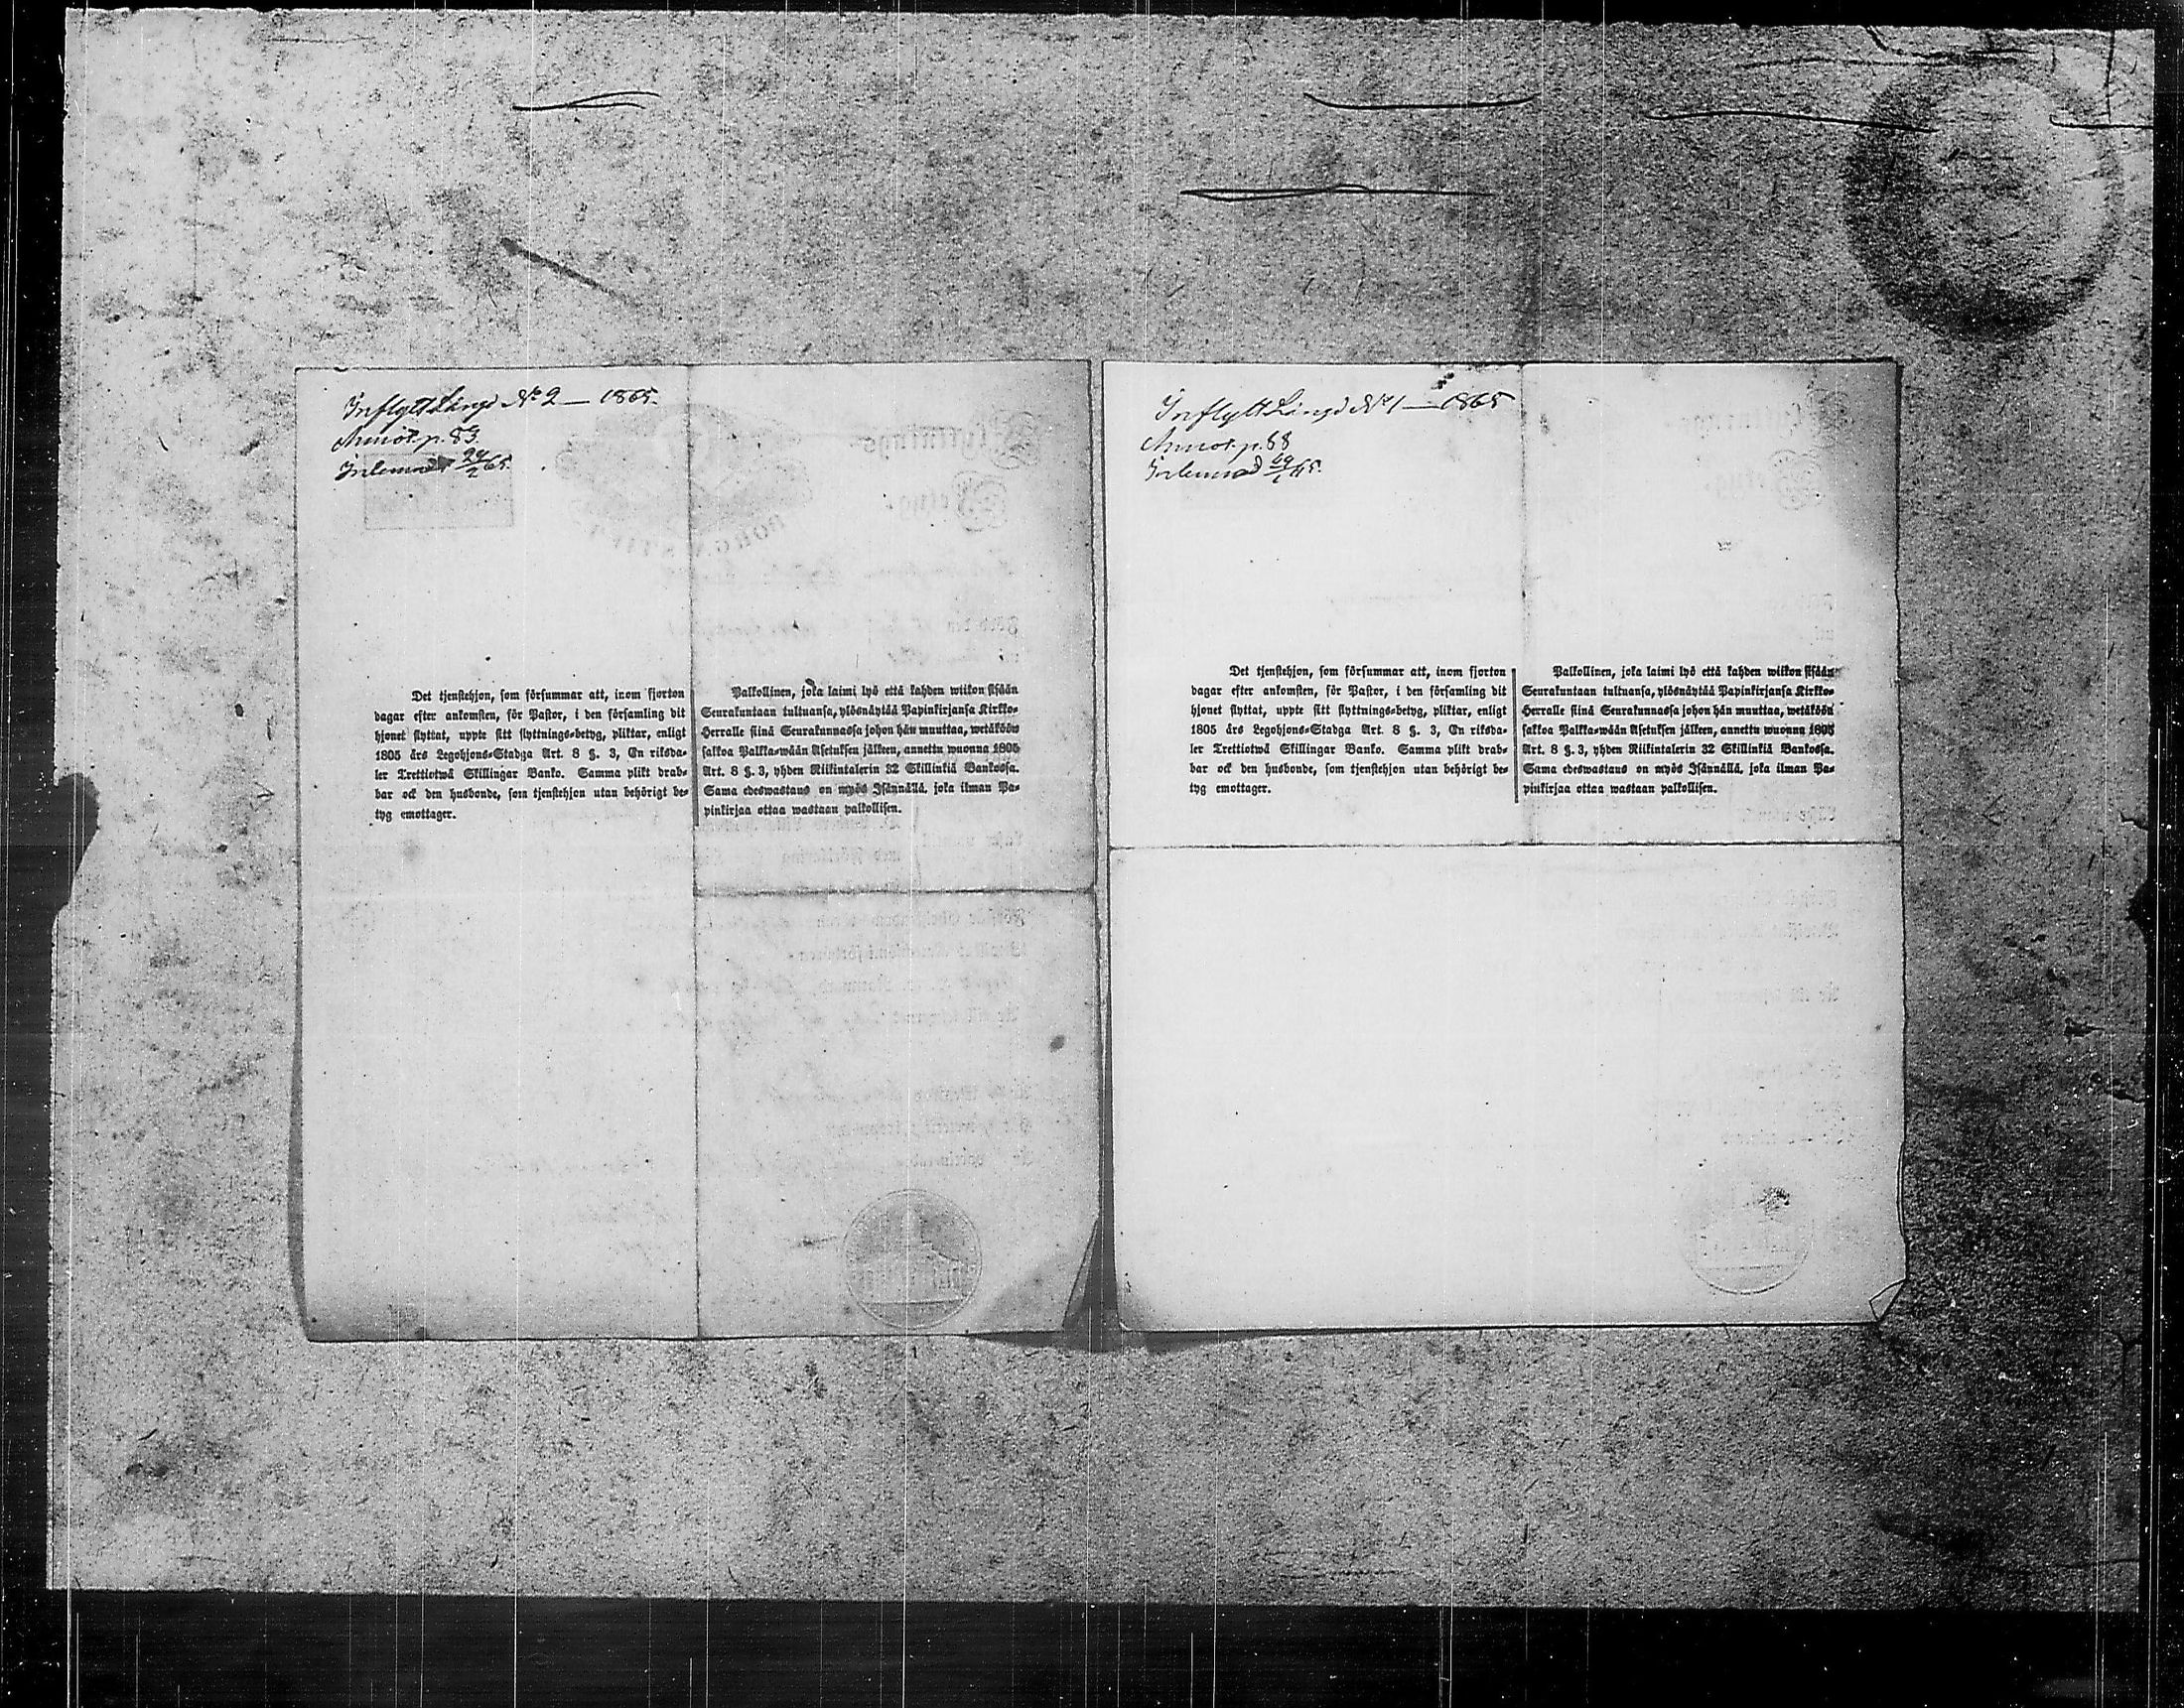 Inflytt Längd No 2 — 1865.
Annot. p. 83.
Inlemnad 24/2 65.
Det tjenstehjon, som försummar att, inom fjorton
dagar efter ankomsten, för Pastor, i den församling dit
hjonet flyttat, uppte sitt flyttnings-betyg, pliktar, enligt
1805 års Legohjons-Stadga Art. 8 §. 3, En riksda-
ler Trettiotwå Skillingar Banko. Samma plikt drab-
bar ock den husbonde, som tjenstehjon utan behörigt be-
tyg emottager.
Palkollinen, joka laimi lyö että kahden wiikon sisään
Seurakuntaan tultuansa, ylösnäytää Papinkirjansa Kirkko-
Herralle siinä Seurakunnassa johon hän muuttaa, wetäköön
sakkoa Palkka-wään Asetuksen jälkeen, annettu wuonna 1805
Art. 8 §. 3, yhden Riikintalerin 32 Skillinkiä Bankossa.
Sama edeswastaus on myös Isännällä, joka ilman Pa-
pinkirjaa ottaa wastaan palkollisen.
Inflytt Längd No 1 — 1865
Annot. p. 88
Inlemnad
Det tjenstehjon, som försummar att, inom fjorton
dagar efter ankomsten, för Pastor, i den församling dit
hjonet flyttat, uppte sitt flyttnings-betyg, pliktar, enligt
1805 års Legohjons-Stadga Art. 8 §. 3, En riksda-
ler Trettiotwå Skillingar Banko. Samma plikt drab-
bar ock den husbonde, som tjenstehjon utan behörigt be-
tyg emottager.
Palkollinen, joka laimi lyö että kahden wiikon sisään
Seurakuntaan tultuansa, ylösnäytää Papinkirjansa Kirkko-
Herralle siinä Seurakunnassa johon hän muuttaa, wetäköön
sakkoa Palkka-wään Asetuksen jälkeen, annettu wuonna 1805
Art. 8 §. 3, yhden Riikintalerin 32 Skillinkiä Bankossa.
Sama edeswastaus on myös Isännällä, joka ilman Pa-
pinkirjaa ottaa wastaan palkollisen.